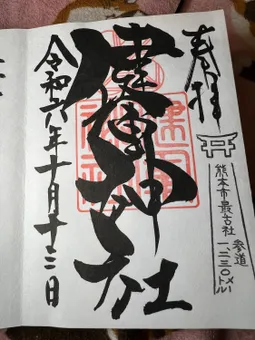 奉拝
熊本市最古社
参道
一、二三〇メートル
健軍神社
令和六年十月十三日